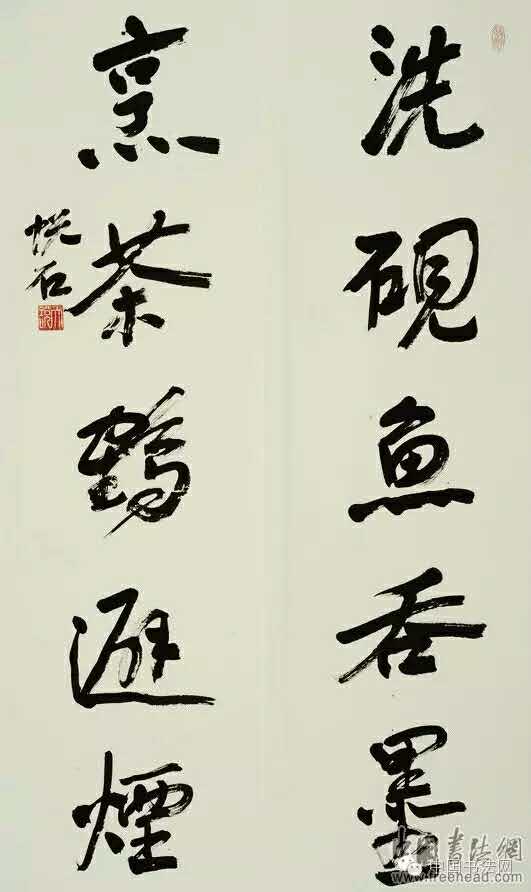 洗硯魚吞墨
烹茶鶴避煙
悦石
中国书法网
www.freehead.com